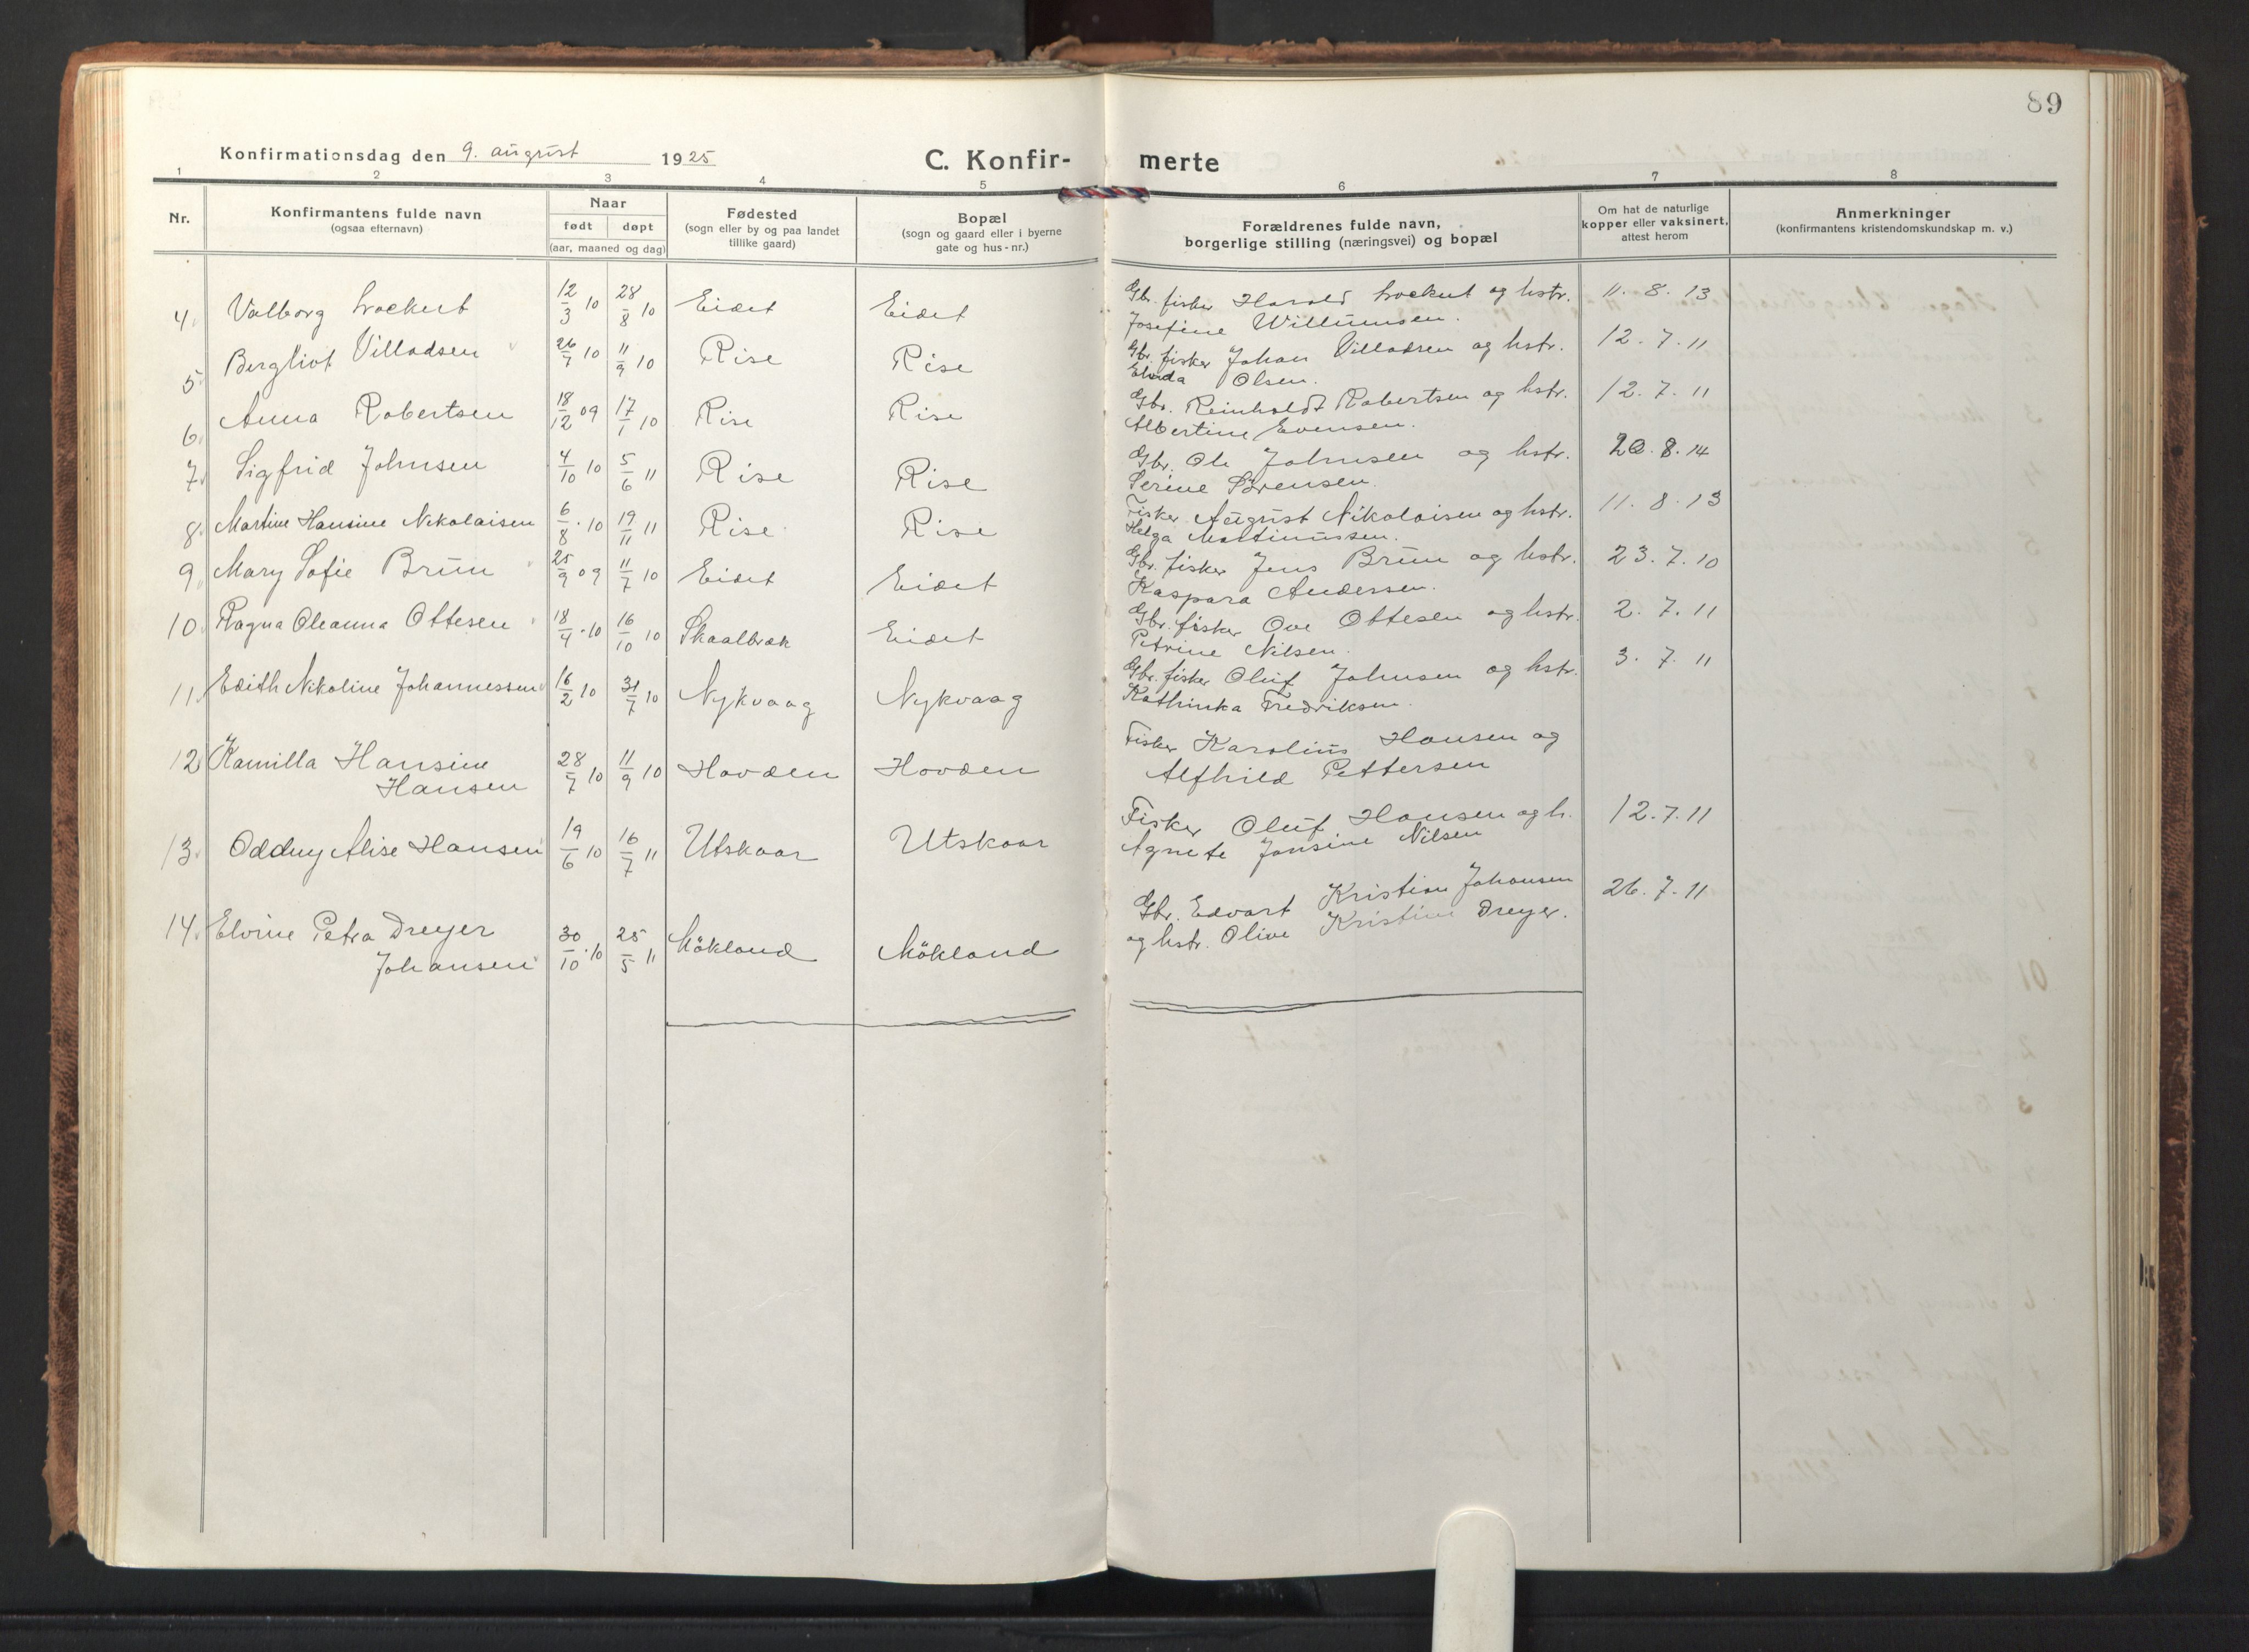 89
Konfirmationsdag den 9. august 1925
C. Konfir-merte
1 2 3 4 5 6 7 8
Nr.
Konfirmantens fulde navn
(ogsaa efternavn)
Naar
født døpt
(aar, maaned og dag)
Fødested
(sogn eller by og paa landet
tillike gaard)
Bopæl
(sogn og gaard eller i byerne
gate og hus-nr.)
Forældrenes fulde navn,
borgerlige stilling (næringsvei) og bopæl
Om hat de naturlige
kopper eller vaksinert,
attest herom
Anmerkninger
(konfirmantens kristendomskundskap m. v.)
4. Valborg Lockert 12/3 10 28/8 10 Eidet Eidet Gbr. fisker Harald Lockert og hstr. 11. 8. 13
Josefine Willumsen.
5. Bergliot Villadsen 26/7 10 11/9 10 Rise Rise Gbr. fisker Johan Villadsen og hstr. 12. 7. 11
Olsen.
6. Anna Robertsen 18/12 09 17/1 10 Rise Rise Gbr. Reinholdt Robertsen og hstr. 12. 7. 11
Albertine Evensen.
7. Sigfrid Johnsen 4/10 10 5/6 11 Rise Rise Gbr. Ole Johnsen og hstr. 20. 8. 14
Serine Sørensen.
8. Martine Hansine Nikolaisen 6/8 10 19/11 11 Rise Rise Fisker August Nikolaisen og hstr. 11. 8. 13
Helga Martinussen.
9. Mary Sofie Brun 25/9 09 11/7 10 Eidet Eidet Gbr. fisker Jens Brun og hstr. 23. 7. 10
Kaspara Andersen.
10. Ragna Oleanna Ottesen 18/4 10 16/10 10 Skaalbræk Eidet Gbr. fisker Ove Ottesen og hstr. 2. 7. 11
Petrine Nilsen.
11. Edith Nikoline Johannessen 16/2 10 31/7 10 Nykvaag Nykvaag Gbr. fisker Oluf Johnsen og hstr. 3. 7. 11
Kathinka Fredriksen.
12. Kamilla Hansine 28/7 10 11/9 10 Hovden Hovden Fisker Karolius Hansen og
Hansen Alfhild Pettersen
13. Oddny Alise Hansen 19/6 10 16/7 11 Utskaar Utskaar Fisker Oluf Hansen og h. 12. 7. 11
Agnete Jonsine Nilsen
14. Elvine Petra Dreyer 30/10 10 25/5 11 Mökland Mökland Gbr. Edvart Kristian Johansen 26. 7. 11
Johansen og hstr. Olive Kristine Dreyer.